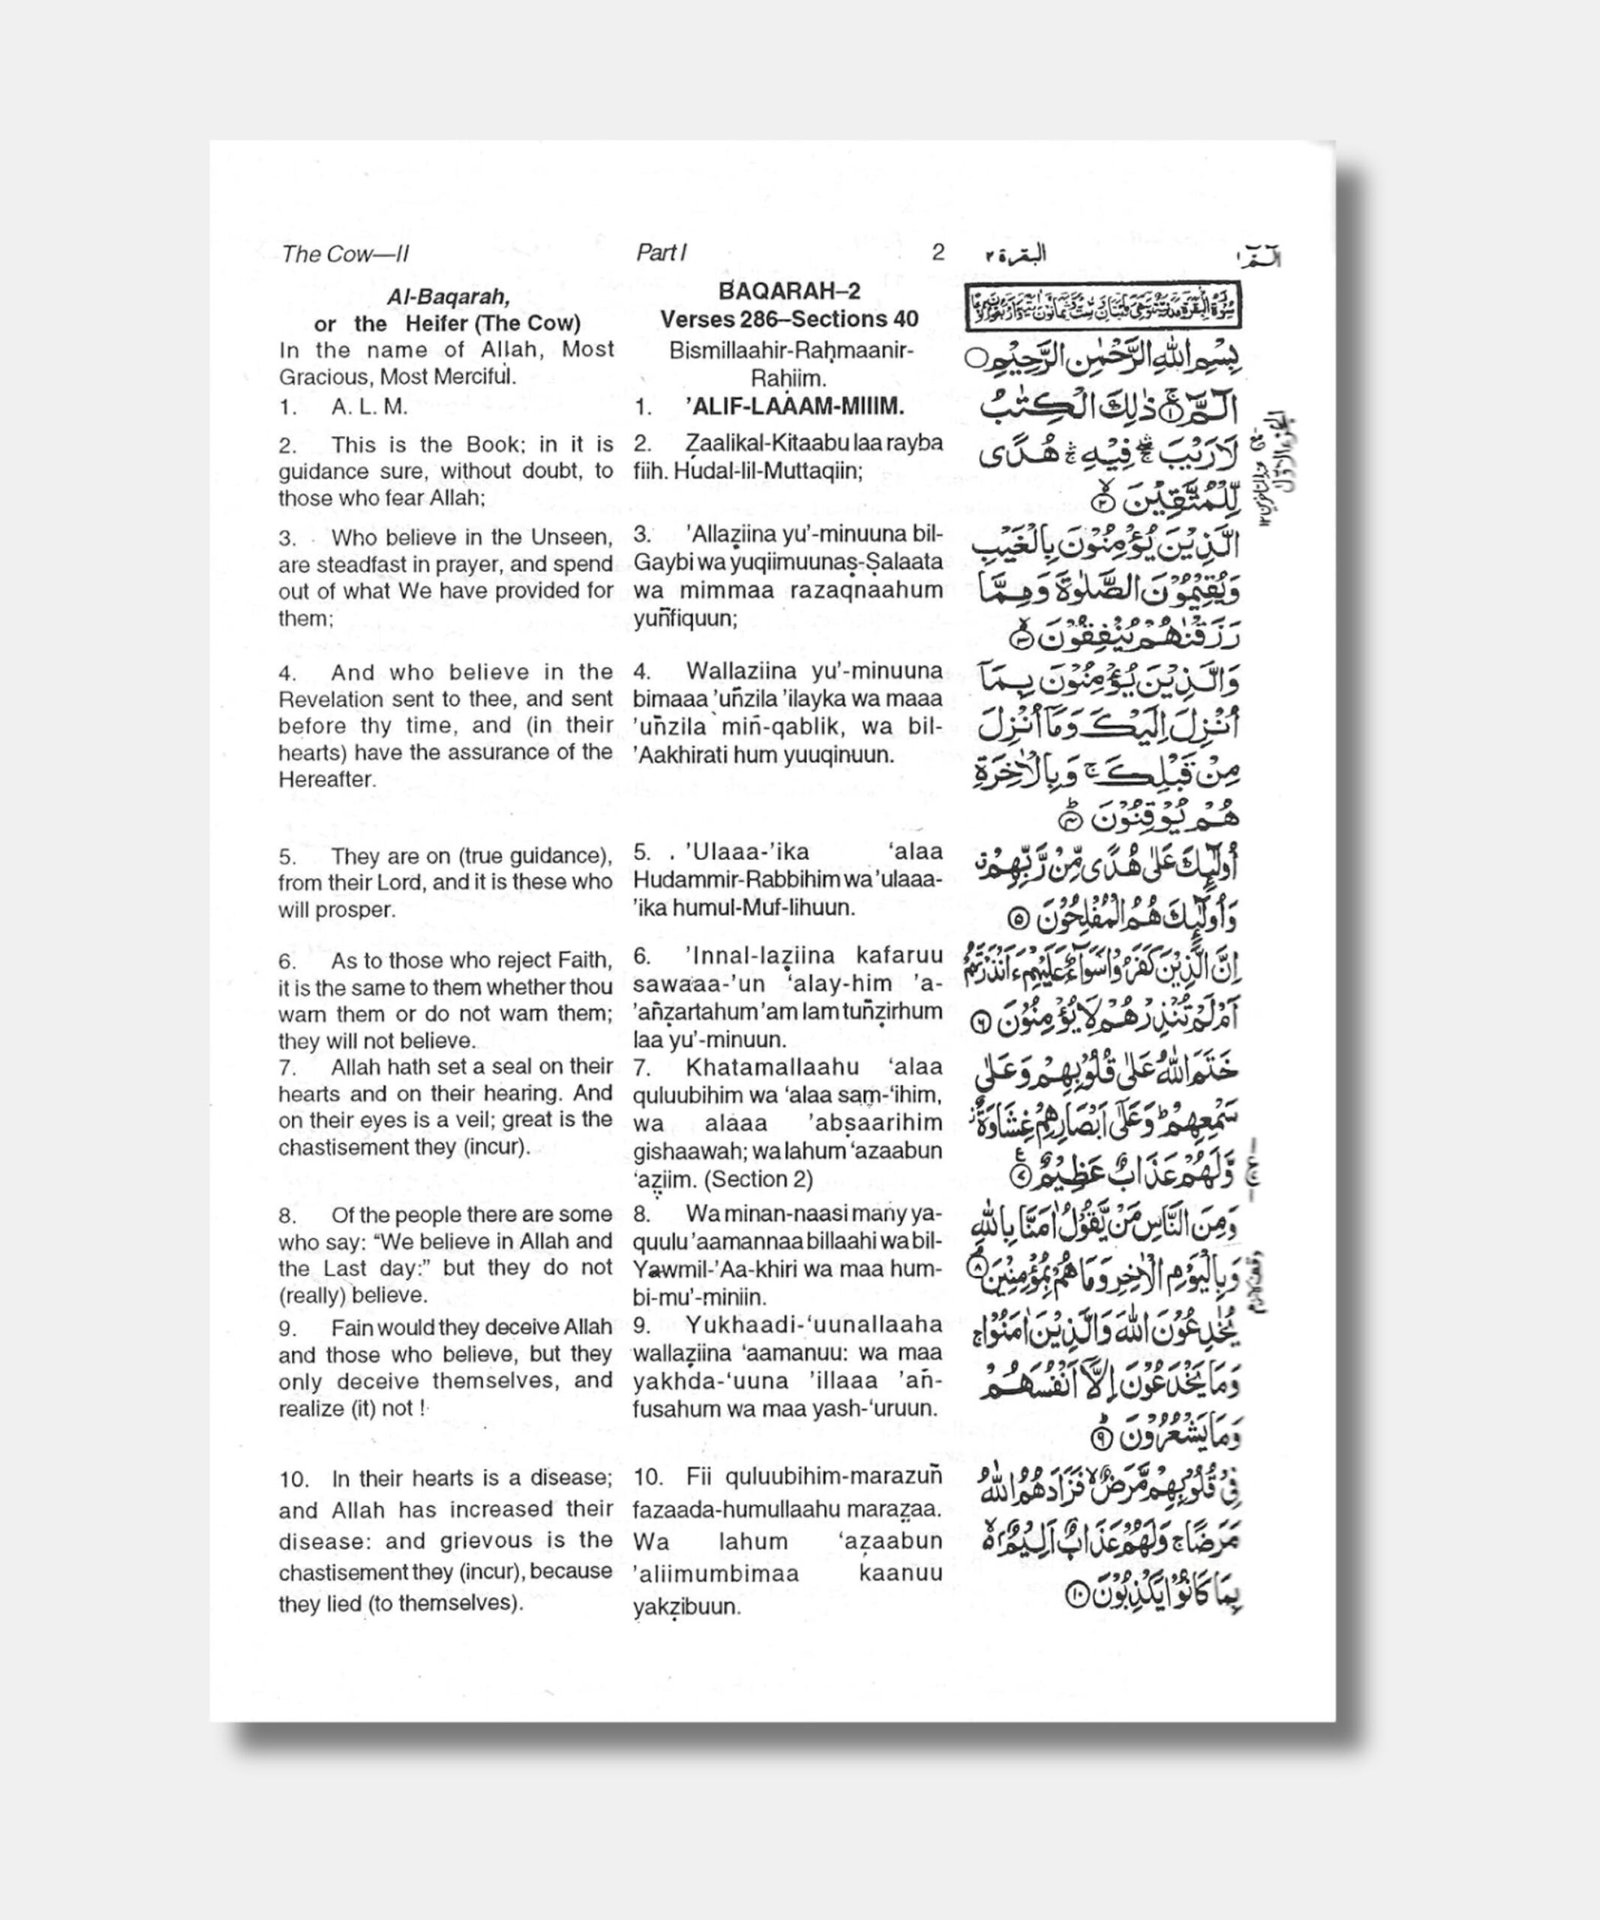 The Cow—II
Part I
2
البقرة ٢
الٓمّٓ ١
Al-Baqarah,
or the Heifer (The Cow)
In the name of Allah, Most
Gracious, Most Merciful.
1. A. L. M.
2. This is the Book; in it is
guidance sure, without doubt, to
those who fear Allah;
3. Who believe in the Unseen,
are steadfast in prayer, and spend
out of what We have provided for
them;
4. And who believe in the
Revelation sent to thee, and sent
before thy time, and (in their
hearts) have the assurance of the
Hereafter.
5. They are on (true guidance),
from their Lord, and it is these who
will prosper.
6. As to those who reject Faith,
it is the same to them whether thou
warn them or do not warn them;
they will not believe.
7. Allah hath set a seal on their
hearts and on their hearing. And
on their eyes is a veil; great is the
chastisement they (incur).
8. Of the people there are some
who say: “We believe in Allah and
the Last day:” but they do not
(really) believe.
9. Fain would they deceive Allah
and those who believe, but they
only deceive themselves, and
realize (it) not !
10. In their hearts is a disease;
and Allah has increased their
disease: and grievous is the
chastisement they (incur), because
they lied (to themselves).
BAQARAH–2
Verses 286–Sections 40
Bismillaahir-Raḥmaanir-
Raḥiim.
1. ’ALIF-LAAAM-MIIIM.
2. Z̤aalikal-Kitaabu laa rayba
fiih. Hudal-lil-Muttaqiin;
3. ’Allaz̤iina yu’-minuuna bil-
Gaybi wa yuqiimuunaṣ-Ṣalaata
wa mimmaa razaqnaahum
yuñfiquun;
4. Wallaziina yu’-minuuna
bimaaa ’uñzila ’ilayka wa maaa
’uñzila miñ-qablik, wa bil-
’Aakhirati hum yuuqinuun.
5. ’Ulaaa-’ika ‘alaa
Hudammir-Rabbihim wa ’ulaaa-
’ika humul-Muf-lihuun.
6. ’Innal-laz̤iina kafaruu
sawaaa-’un ‘alay-him ’a-
’añz̤artahum ’am lam tuñz̤irhum
laa yu’-minuun.
7. Khatamallaahu ‘alaa
quluubihim wa ‘alaa sam-‘ihim,
wa alaaa ’abṣaarihim
gishaawah; wa lahum ‘azaabun
‘az̤iim. (Section 2)
8. Wa minan-naasi many ya-
quulu ’aamannaa billaahi wa bil-
Yawmil-’Aa-khiri wa maa hum-
bi-mu’-miniin.
9. Yukhaadi-‘uunallaaha
wallaz̤iina ‘aamanuu: wa maa
yakhda-‘uuna ’illaaa ’añ-
fusahum wa maa yash-‘uruun.
10. Fii quluubihim-marazuñ
fazaada-humullaahu maraz̤aa.
Wa lahum ‘az̤aabun
’aliimumbimaa kaanuu
yakz̤ibuun.
بِسْمِ اللّٰهِ الرَّحْمٰنِ الرَّحِيْمِ
الٓمّٓ ۚ ١ ذٰلِكَ الْكِتٰبُ
لَا رَيْبَ ۛ فِيْهِ ۛ هُدًى
لِّلْمُتَّقِيْنَ ٢
الَّذِيْنَ يُؤْمِنُوْنَ بِالْغَيْبِ
وَيُقِيْمُوْنَ الصَّلٰوةَ وَمِمَّا
رَزَقْنٰهُمْ يُنْفِقُوْنَ ٣
وَالَّذِيْنَ يُؤْمِنُوْنَ بِمَآ
اُنْزِلَ اِلَيْكَ وَمَآ اُنْزِلَ
مِنْ قَبْلِكَ ۚ وَبِالْاٰخِرَةِ
هُمْ يُوْقِنُوْنَ ٤
اُولٰٓئِكَ عَلٰى هُدًى مِّنْ رَّبِّهِمْ
وَاُولٰٓئِكَ هُمُ الْمُفْلِحُوْنَ ٥
اِنَّ الَّذِيْنَ كَفَرُوْا سَوَآءٌ عَلَيْهِمْ ءَاَنْذَرْتَهُمْ
اَمْ لَمْ تُنْذِرْهُمْ لَا يُؤْمِنُوْنَ ٦
خَتَمَ اللّٰهُ عَلٰى قُلُوْبِهِمْ وَعَلٰى
سَمْعِهِمْ ؕ وَعَلٰٓى اَبْصَارِهِمْ غِشَاوَةٌ
وَّلَهُمْ عَذَابٌ عَظِيْمٌ ٧
وَمِنَ النَّاسِ مَنْ يَّقُوْلُ اٰمَنَّا بِاللّٰهِ
وَبِالْيَوْمِ الْاٰخِرِ وَمَا هُمْ بِمُؤْمِنِيْنَ ٨
يُخٰدِعُوْنَ اللّٰهَ وَالَّذِيْنَ اٰمَنُوْا ۚ
وَمَا يَخْدَعُوْنَ اِلَّآ اَنْفُسَهُمْ
وَمَا يَشْعُرُوْنَ ٩
فِيْ قُلُوْبِهِمْ مَّرَضٌ ۙ فَزَادَهُمُ اللّٰهُ
مَرَضًا ۚ وَلَهُمْ عَذَابٌ اَلِيْمٌ ۢ ۙ
بِمَا كَانُوْا يَكْذِبُوْنَ ١٠